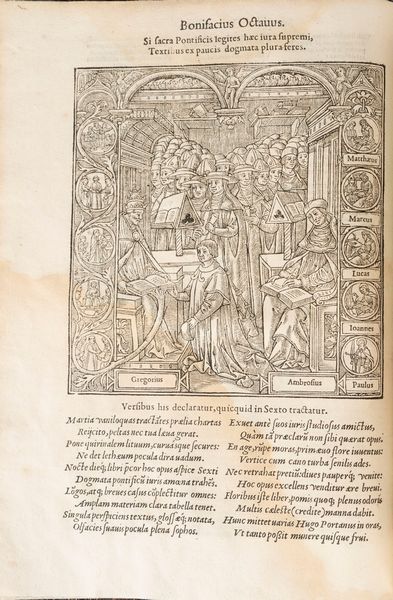 Bonifacius Octauus.
Si sacra Pontificis legites hæc iura supremi,
Textibus ex paucis dogmata plura feres.
Matthæus
Marcus
Lucas
Ioannes
Gregorius
Ambrosius
Paulus
Versibus his declaratur, quicquid in Sexto tractatur.
Martia vaniloquas tractātes prælia chartas
Reijcito, peltas nec tua læua gerat.
Pone quirinalem lituum, curuasque secures:
Ne det lethæum pocula dira uadum.
Nocte dieq; libri picor hoc opus aspice Sexti
Dogmata pontificū iuris amœna trahēs.
Logos, atq; breues casus cōplectitur omnes:
Amplam materiam clara tabella tenet.
Singula perspiciens textus, glossæq; notata,
Olfacies suauis pocula plena sophos.
Exuet ante suos iuris studiosus amictus,
Quam tā præclarū non sibi quærat opus.
En age, rūpe moras, primæuo flore iuuentus:
Vertice cum cano turba seniles ades.
Nec retrahat pretiū: diues pauperq; venite:
Hoc opus excellens venditur ære breui.
Floribus iste liber, pomis quoq; plenus odoris
Multis cæleste (credite) manna dabit.
Hunc mittet varias Hugo Portanus in oras,
Vt tanto possit munere quisque frui.